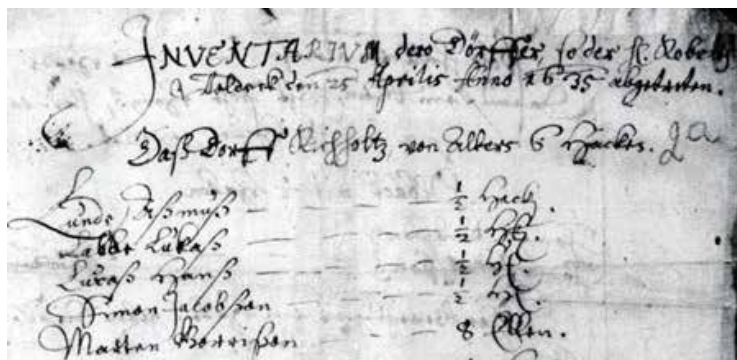 INVENTARIUM dero Dörffer, so der H. Robert
Taldeck den 25 Aprilis Anno 1635 abgetreten.
Daß Dorff Rickholtz von Alters 6 Hacken.
Lunde Aßmuß — — — — ½ Hack.
Labbe Lukaß — — — — ½ H.
Lukaß Hanß — — — — ½ H.
Simon Jakobßon — — — — ½ H.
Marten — — 8 Ellen.